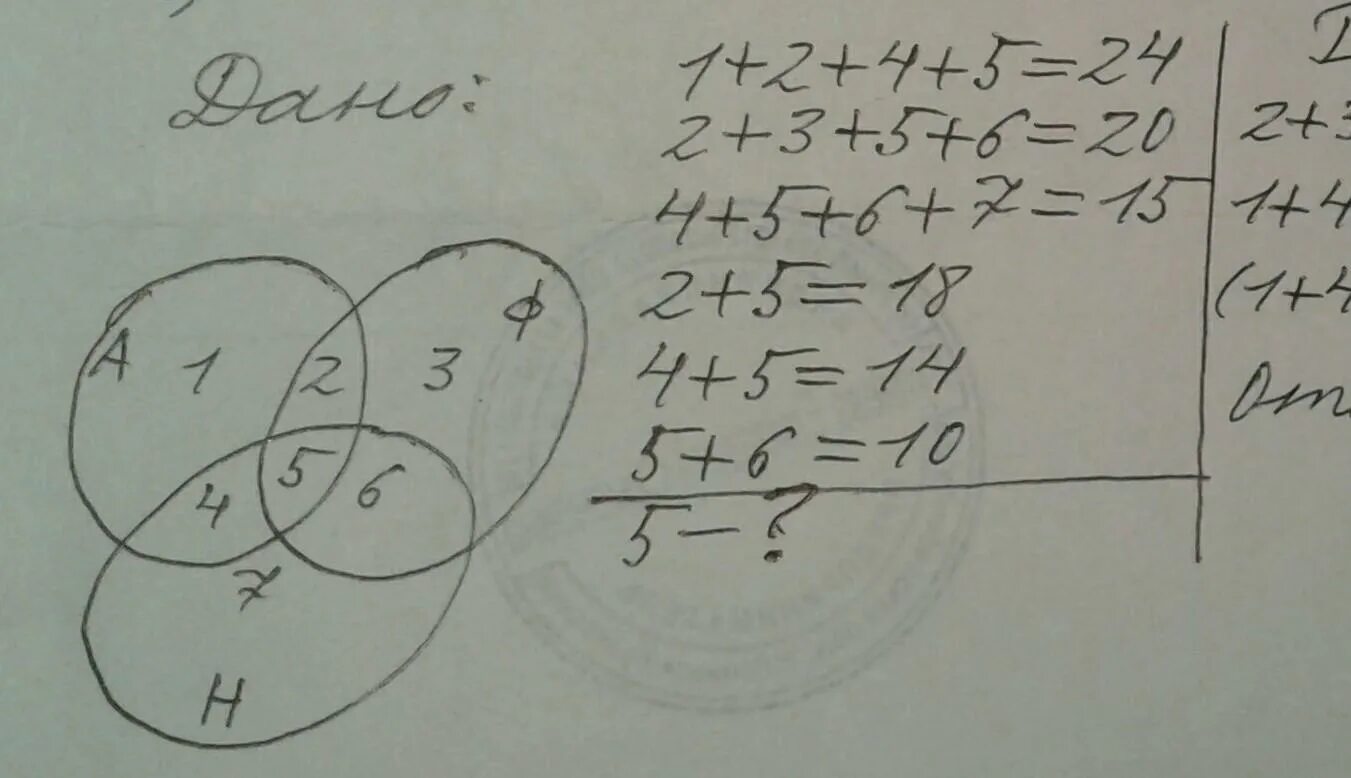 Дано:
1+2+4+5=24
2+3+5+6=20
4+5+6+7=15
2+5=18
4+5=14
5+6=10
5-?
2+3
1+4
(1+4
А 1 2 3 Ф
4 5 6
7
Н